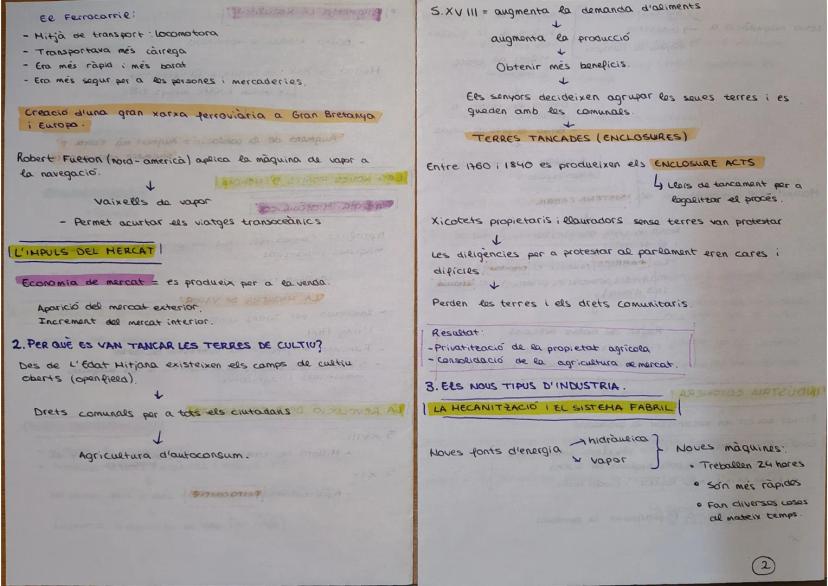 El Ferrocarril:
- Mitjà de transport: locomotora
- Transportava més càrrega
- Era més ràpid i més barat
- Era més segur per a les persones i mercaderies.
Creació d'una gran xarxa ferroviària a Gran Bretanya
i Europa.
Robert Fulton (nord-americà) aplica la màquina de vapor a
la navegació.
↓
Vaixells de vapor
- Permet acurtar els viatges transoceànics
L'IMPULS DEL MERCAT
Economia de mercat = es produeix per a la venda.
Aparició del mercat exterior.
Increment del mercat interior.
2. PER QUÈ ES VAN TANCAR LES TERRES DE CULTIU?
Des de L'Edat Mitjana existeixen els camps de cultiu
oberts (openfield).
↓
Drets comunals per a tots els ciutadans
↓
Agricultura d'autoconsum.
S. XVIII = augmenta la demanda d'aliments
↓
augmenta la producció
↓
Obtenir més beneficis.
↓
Els senyors decideixen agrupar les seues terres i es
queden amb les comunals.
↓
TERRES TANCADES (ENCLOSURES)
Entre 1760 i 1840 es produeixen els ENCLOSURE ACTS
↳ Lleis de tancament per a
legalitzar el procés.
Xicotets propietaris i llauradors sense terres van protestar
↓
Les diligències per a protestar al parlament eren cares i
difícils.
↓
Perden les terres i els drets comunitaris.
Resultat:
- Privatització de la propietat agrícola
- Consolidació de la agricultura de mercat.
3. ELS NOUS TIPUS D'INDUSTRIA.
LA MECANITZACIÓ I EL SISTEMA FABRIL
Noves fonts d'energia → hidràulica
↘ vapor
Noves màquines:
• Treballen 24 hores
• Són més ràpides
• Fan diverses coses
al mateix temps.
2